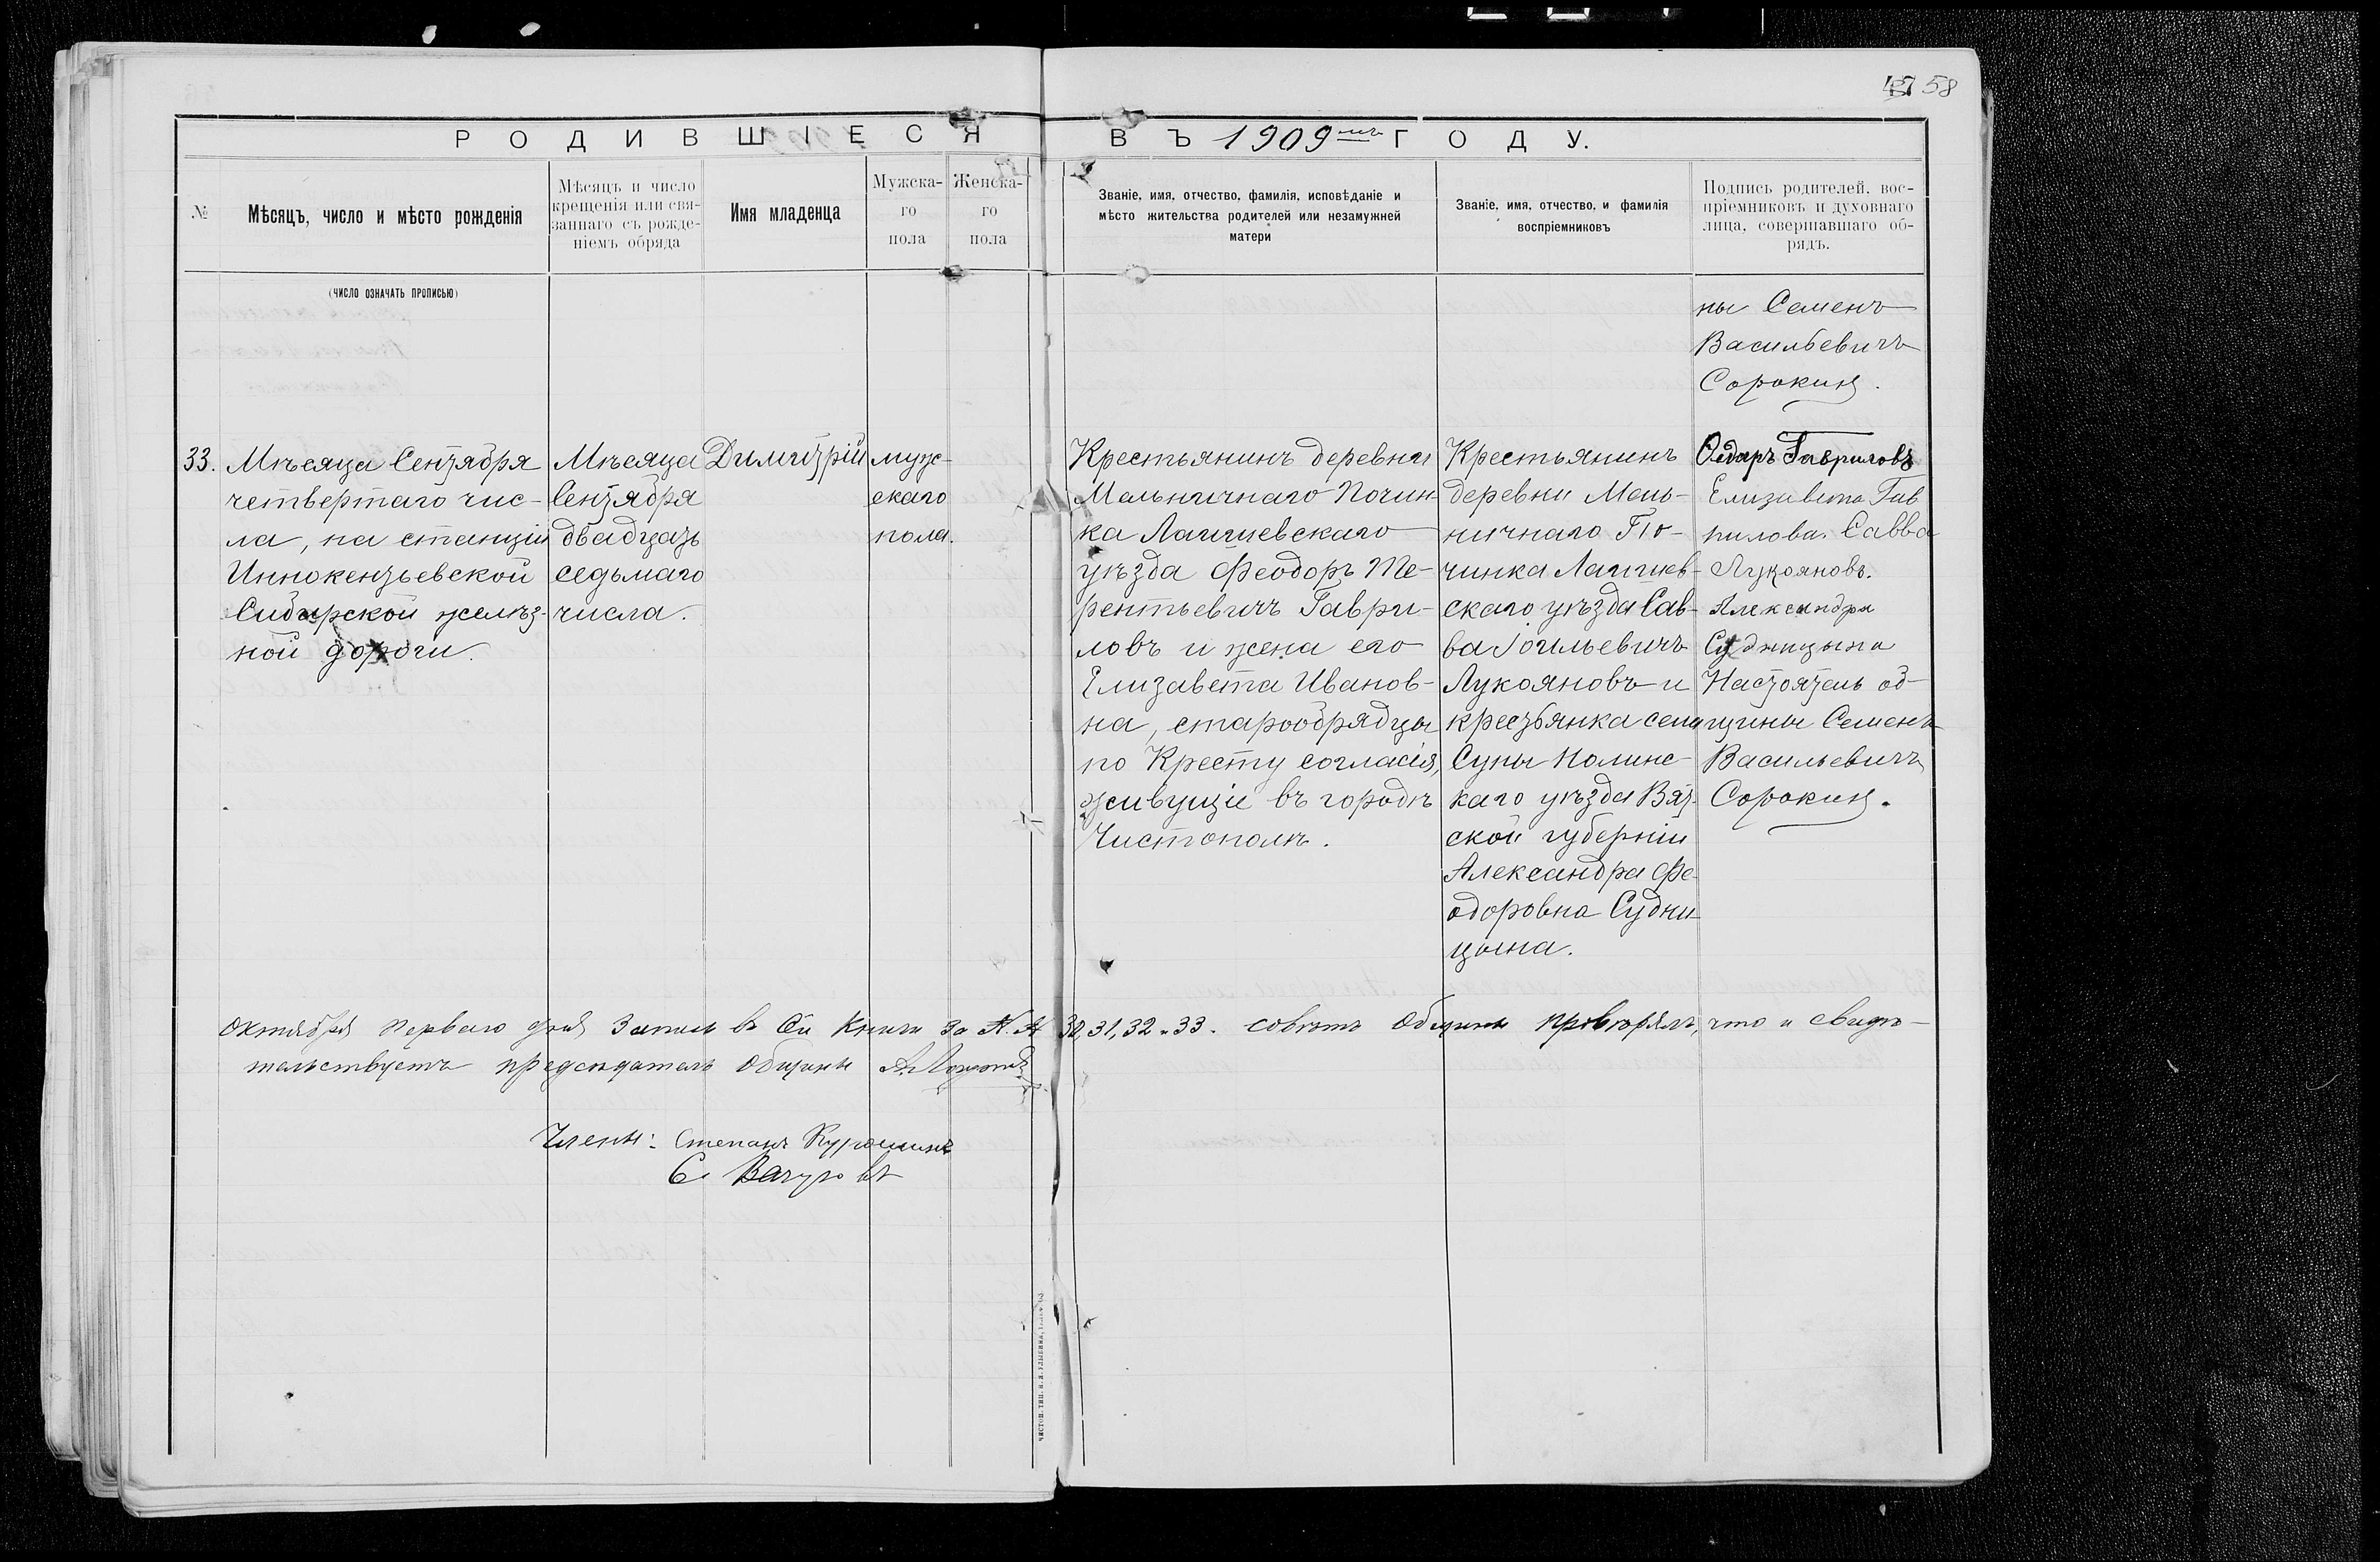 58
РОДИВШІЕСЯ ВЪ 1909мъ ГОДУ.
№
Мѣсяцъ, число и мѣсто рожденія
Мѣсяцъ и число
крещенія или свя-
заннаго съ рожде-
ніемъ обряда
Имя младенца
Мужска-
го
пола
Женска-
го
пола
Званіе, имя, отчество, фамилія, исповѣданіе и
мѣсто жительства родителей или незамужней
матери
Званіе, имя, отчество, и фамилія
воспріемниковъ
Подпись родителей, вос-
пріемниковъ и духовнаго
лица, совершавшаго об-
рядъ.
(ЧИСЛО ОЗНАЧАТЬ ПРОПИСЬЮ)
ны Семенъ
Васильевичъ
Сорокинъ.
33.
Мѣсяца Сентября
четвертаго чис-
ла, на станціи
Иннокентьевской
Сибирской желѣз-
ной дороги.
Мѣсяца
Сентября
двадцать
седьмаго
числа.
Димитрій
муж-
скаго
пола.
Крестьянинъ деревни
Мельничнаго Почин-
ка Лаишевскаго
уѣзда Феодоръ Те-
рентьевичъ Гаври-
ловъ и жена его
Елизавета Иванов-
на, старообрядцы
по Кресту согласія,
живущіе въ городѣ
Чистополѣ.
Крестьянинъ
деревни Мель-
ничнаго По-
чинка Лаишев-
скаго уѣзда Сав-
ва
Лукояновъ и
крестьянка села
Суны Нолинс-
каго уѣзда Вят-
ской губерніи
Александра Фе-
одоровна Судни-
цына.
Федоръ Гавриловъ
Елизавета Гав
рилова. Савва
Лукояновъ.
Александра
Судницына
Настоятель об-
щины Семенъ
Васильевичъ
Сорокинъ.
Октября перваго дня запись в сей книги за №. № 31, 32 и 33. совѣтъ Общины провѣрялъ, что и свидѣ-
тельствуетъ председатель Общины
Члены: Степанъ Курошинъ
С. Вачуговъ